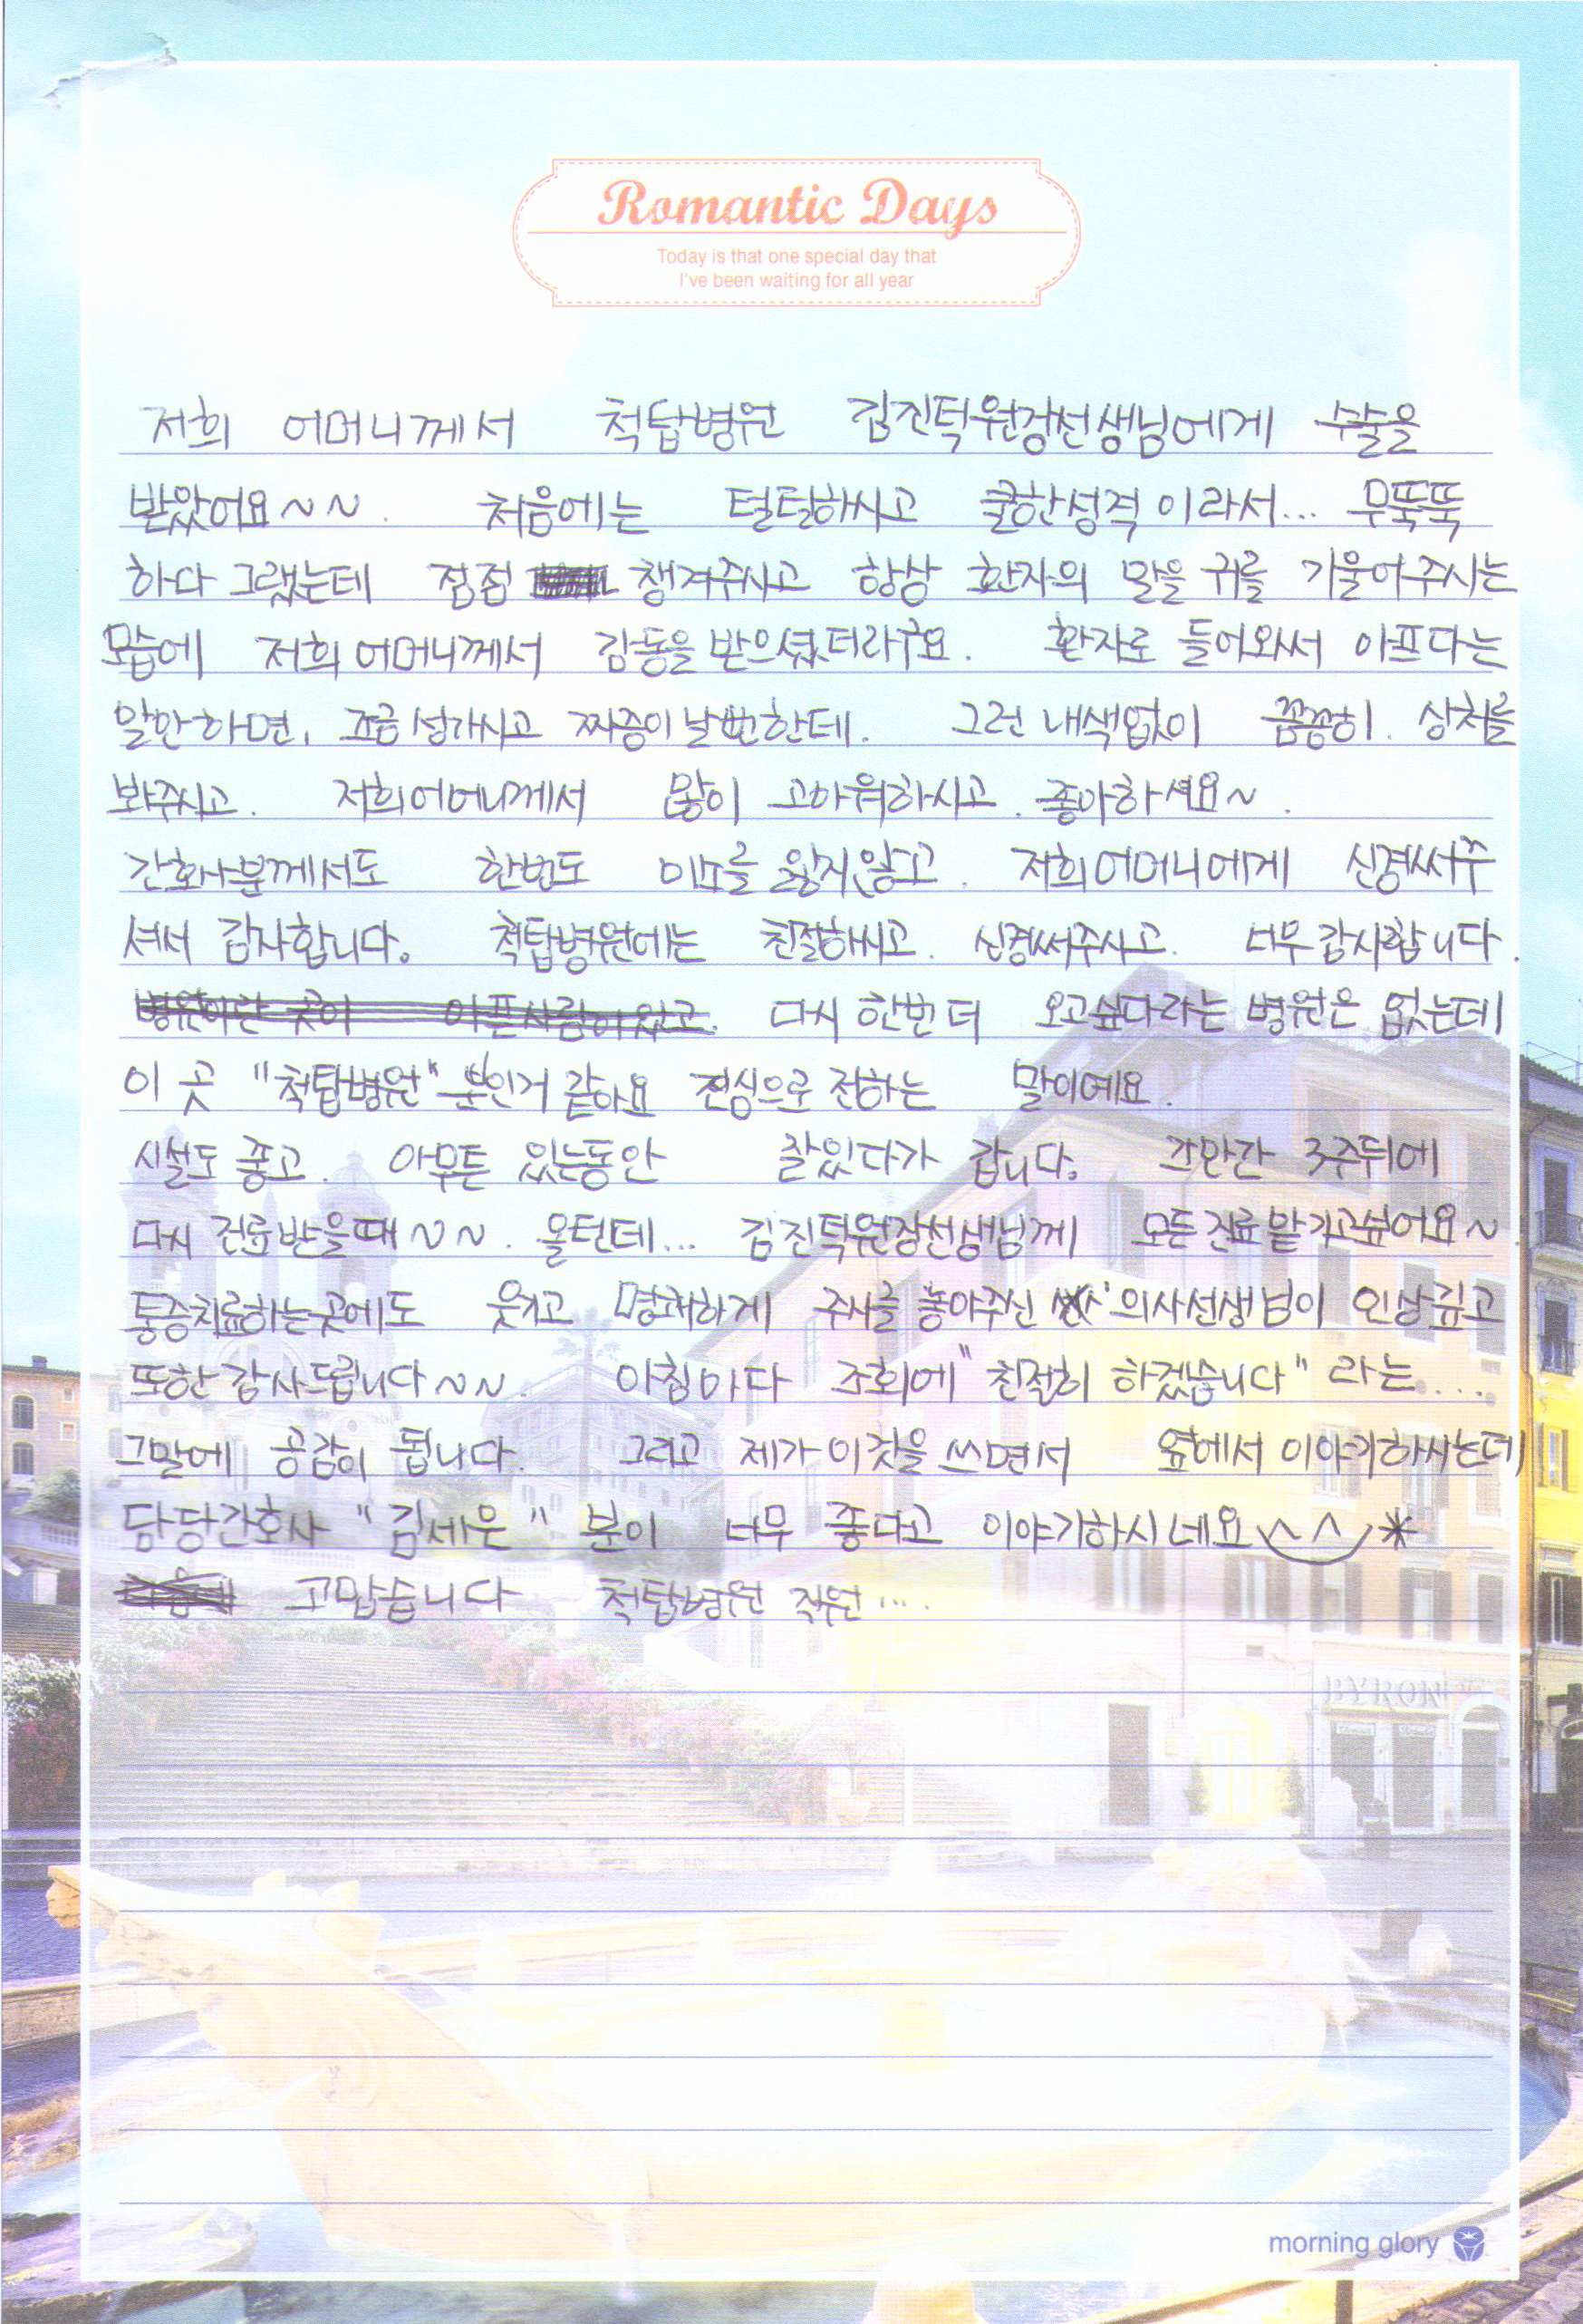 Romantic Days
Today is that one special day that
I've been waiting for all year
저희 어머니께서 척탑병원 김진턱원장선생님에게 수술을
받았어요~~. 처음에는 털털하시고 쿨한성격 이라서... 무뚝뚝
하다 그랬는데 점점 챙겨주시고 항상 환자의 말을 귀를 기울여주시는
모습에 저희 어머니께서 감동을 받으셨더라구요. 환자로 들어와서 아프다는
말만하면, 조금 성가시고 짜증이날뻔한데. 그런 내색없이 꼼꼼히. 상처를
봐주시고. 저희어머니께서 많이 고마워하시고. 좋아하셔요~.
간호사분께서도 한번도 미소를 잃지않고. 저희어머니에게 신경써주
셔서 감사합니다. 척탑병원에는 친절하시고. 신경써주시고. 너무감사합니다.
병원이란 곳이 아픈사람이 있고. 다시 한번 더 오고싶다라는 병원은 없는데
이 곳 "척탑병원"뿐인거 같아요 진심으로 전하는 말이에요.
시설도 좋고. 아무튼 있는동안 잘있다가 갑니다. 그만간 3주뒤에
다시 진료받을때~~. 올턴데... 김진턱원장선생님께 모든진료맡기고싶어요~.
통증치료하는곳에도 웃기고 명쾌하게 주사를 놓아주신 의사선생님이 인상깊고
또한 감사드립니다~~. 아침마다 조회에 "친절히 하겠습니다" 라는....
그말에 공감이 됩니다. 그리고 제가 이것을 쓰면서 옆에서 이야기하시는데
담당간호사 "김세운" 분이 너무 좋다고 이야기하시네요 ^^*
고맙습니다 척탑병원 직원....
BYRON
morning glory